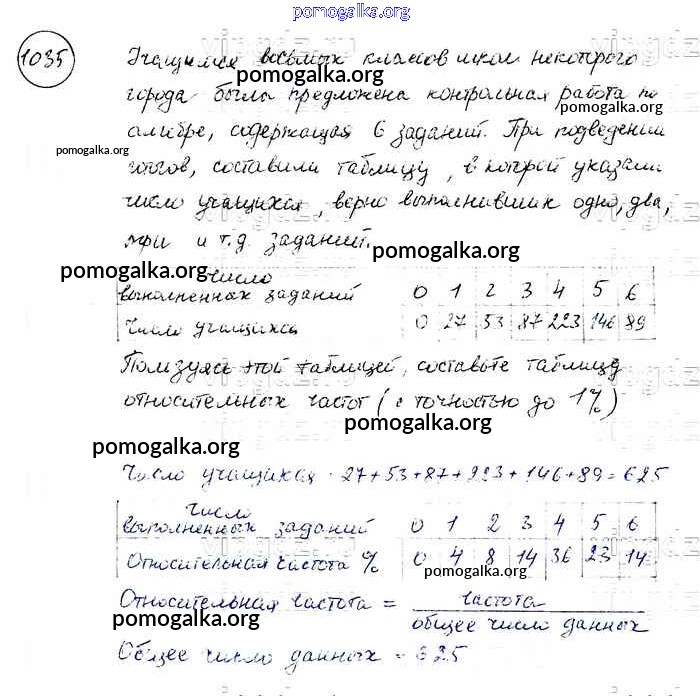 pomogalka.org
1035
Учащимся восьмых классов школ некоторого
pomogalka.org
города была предложена контрольная работа по
алгебре, содержащая 6 заданий. При подведении
pomogalka.org
итогов, составили таблицу, в которой указали
число учащихся, верно выполнивших одно, два,
три и т.д. заданий.
pomogalka.org
pomogalka.org
число
выполненных заданий 0 1 2 3 4 5 6
число учащихся 0 27 53 87 223 146 89
Пользуясь этой таблицей, составьте таблицу
относительных частот (с точностью до 1%)
pomogalka.org
pomogalka.org
Число учащихся - 27+53+87+223+146+89=625
число
выполненных заданий 0 1 2 3 4 5 6
Относительная частота % 0 4 8 14 36 23 14
pomogalka.org
Относительная частота = частота
общее число данных
pomogalka.org
Общее число данных = 625
pomogalka.org